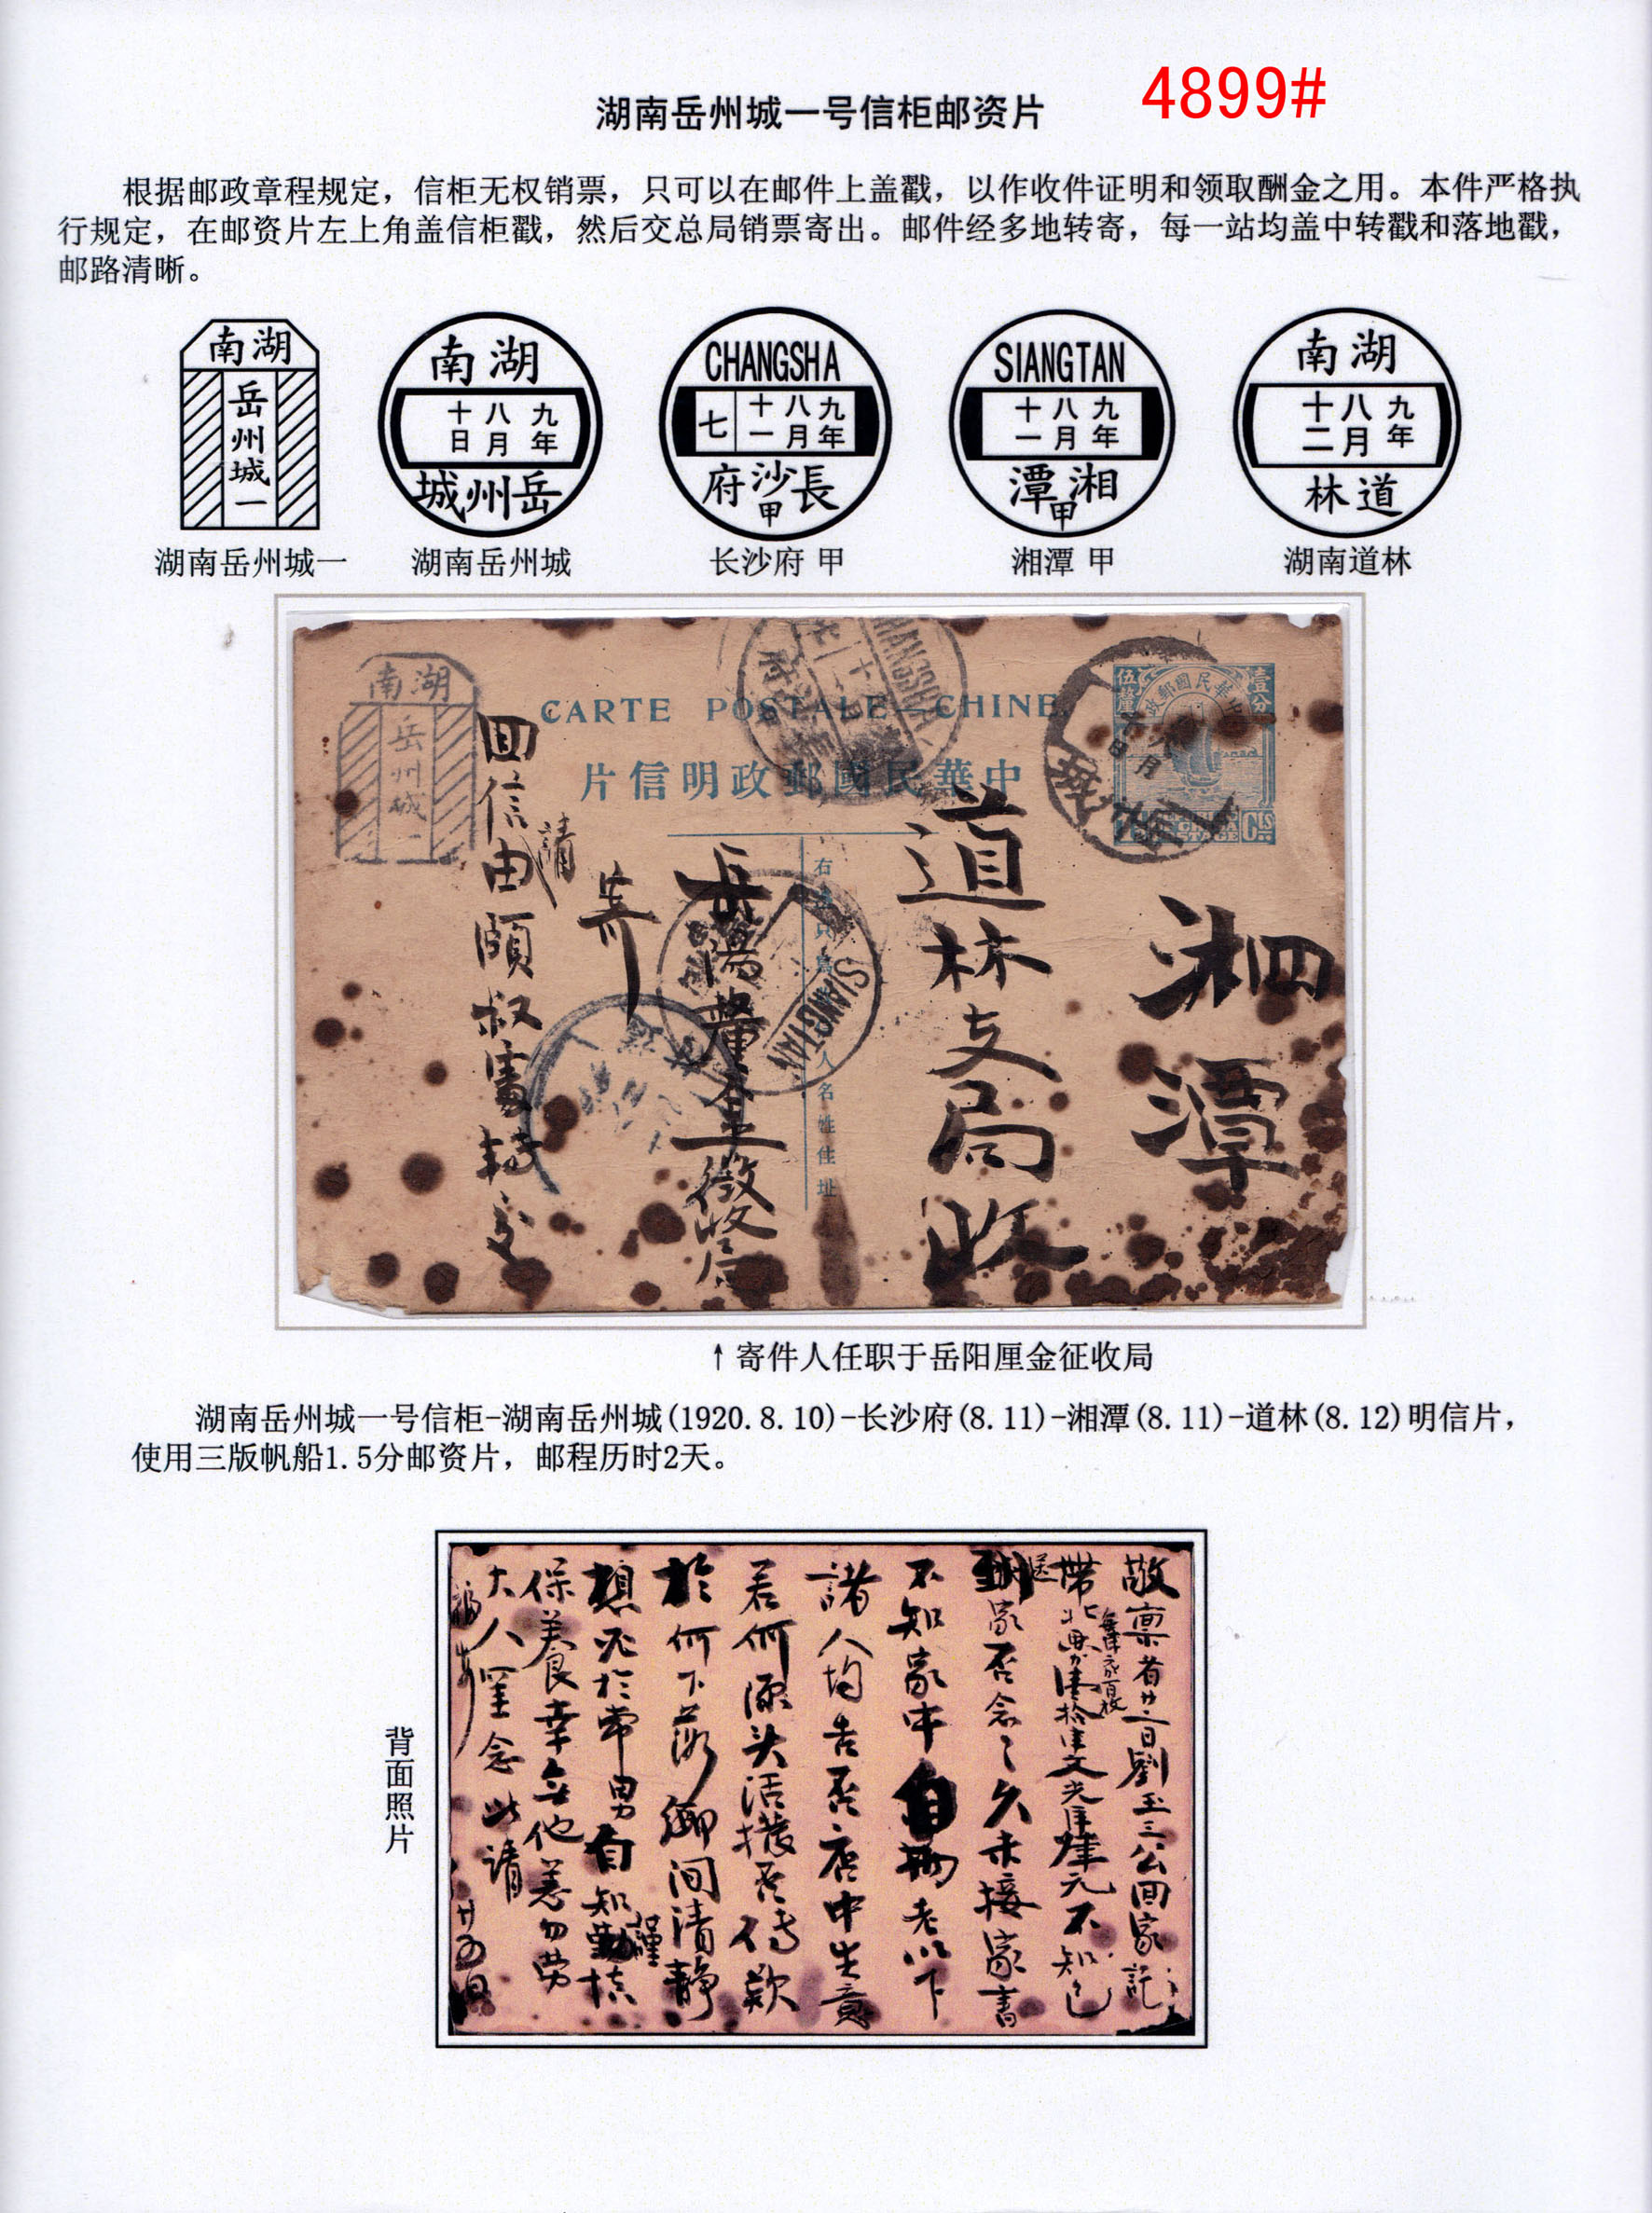 湖南岳州城一号信柜邮资片
4899#
根据邮政章程规定，信柜无权销票，只可以在邮件上盖戳，以作收件证明和领取酬金之用。本件严格执
行规定，在邮资片左上角盖信柜戳，然后交总局销票寄出。邮件经多地转寄，每一站均盖中转戳和落地戳，
邮路清晰。
南湖
岳州城一
南湖
十八九
日月年
城州岳
CHANGSHA
七
十八九
一月年
府沙長
甲
SIANGTAN
十八九
一月年
潭湘
甲
南湖
十八九
二月年
林道
湖南岳州城一
湖南岳州城
长沙府 甲
湘潭 甲
湖南道林
南湖
岳州城一
CARTE POSTALE—CHINE.
片信明政郵國民華中
伍釐
壹分
湘潭
道林支局收
岳陽釐金徵收局
寄
請
回信由頤叔處轉交
SIANGTAN
人名姓住址
↑寄件人任职于岳阳厘金征收局
湖南岳州城一号信柜-湖南岳州城(1920.8.10)-长沙府(8.11)-湘潭(8.11)-道林(8.12)明信片，
使用三版帆船1.5分邮资片，邮程历时2天。
背面照片
敬稟者廿二日劉玉三公回家託
家否念之久未接家書
不知家中自揚老以下
諸人均吉否店中生意
若何源头活撥否借款
於何下落鄉间清靜
想不於常男自知勤慎
保養幸無他恙勿劳
大人罣念此請